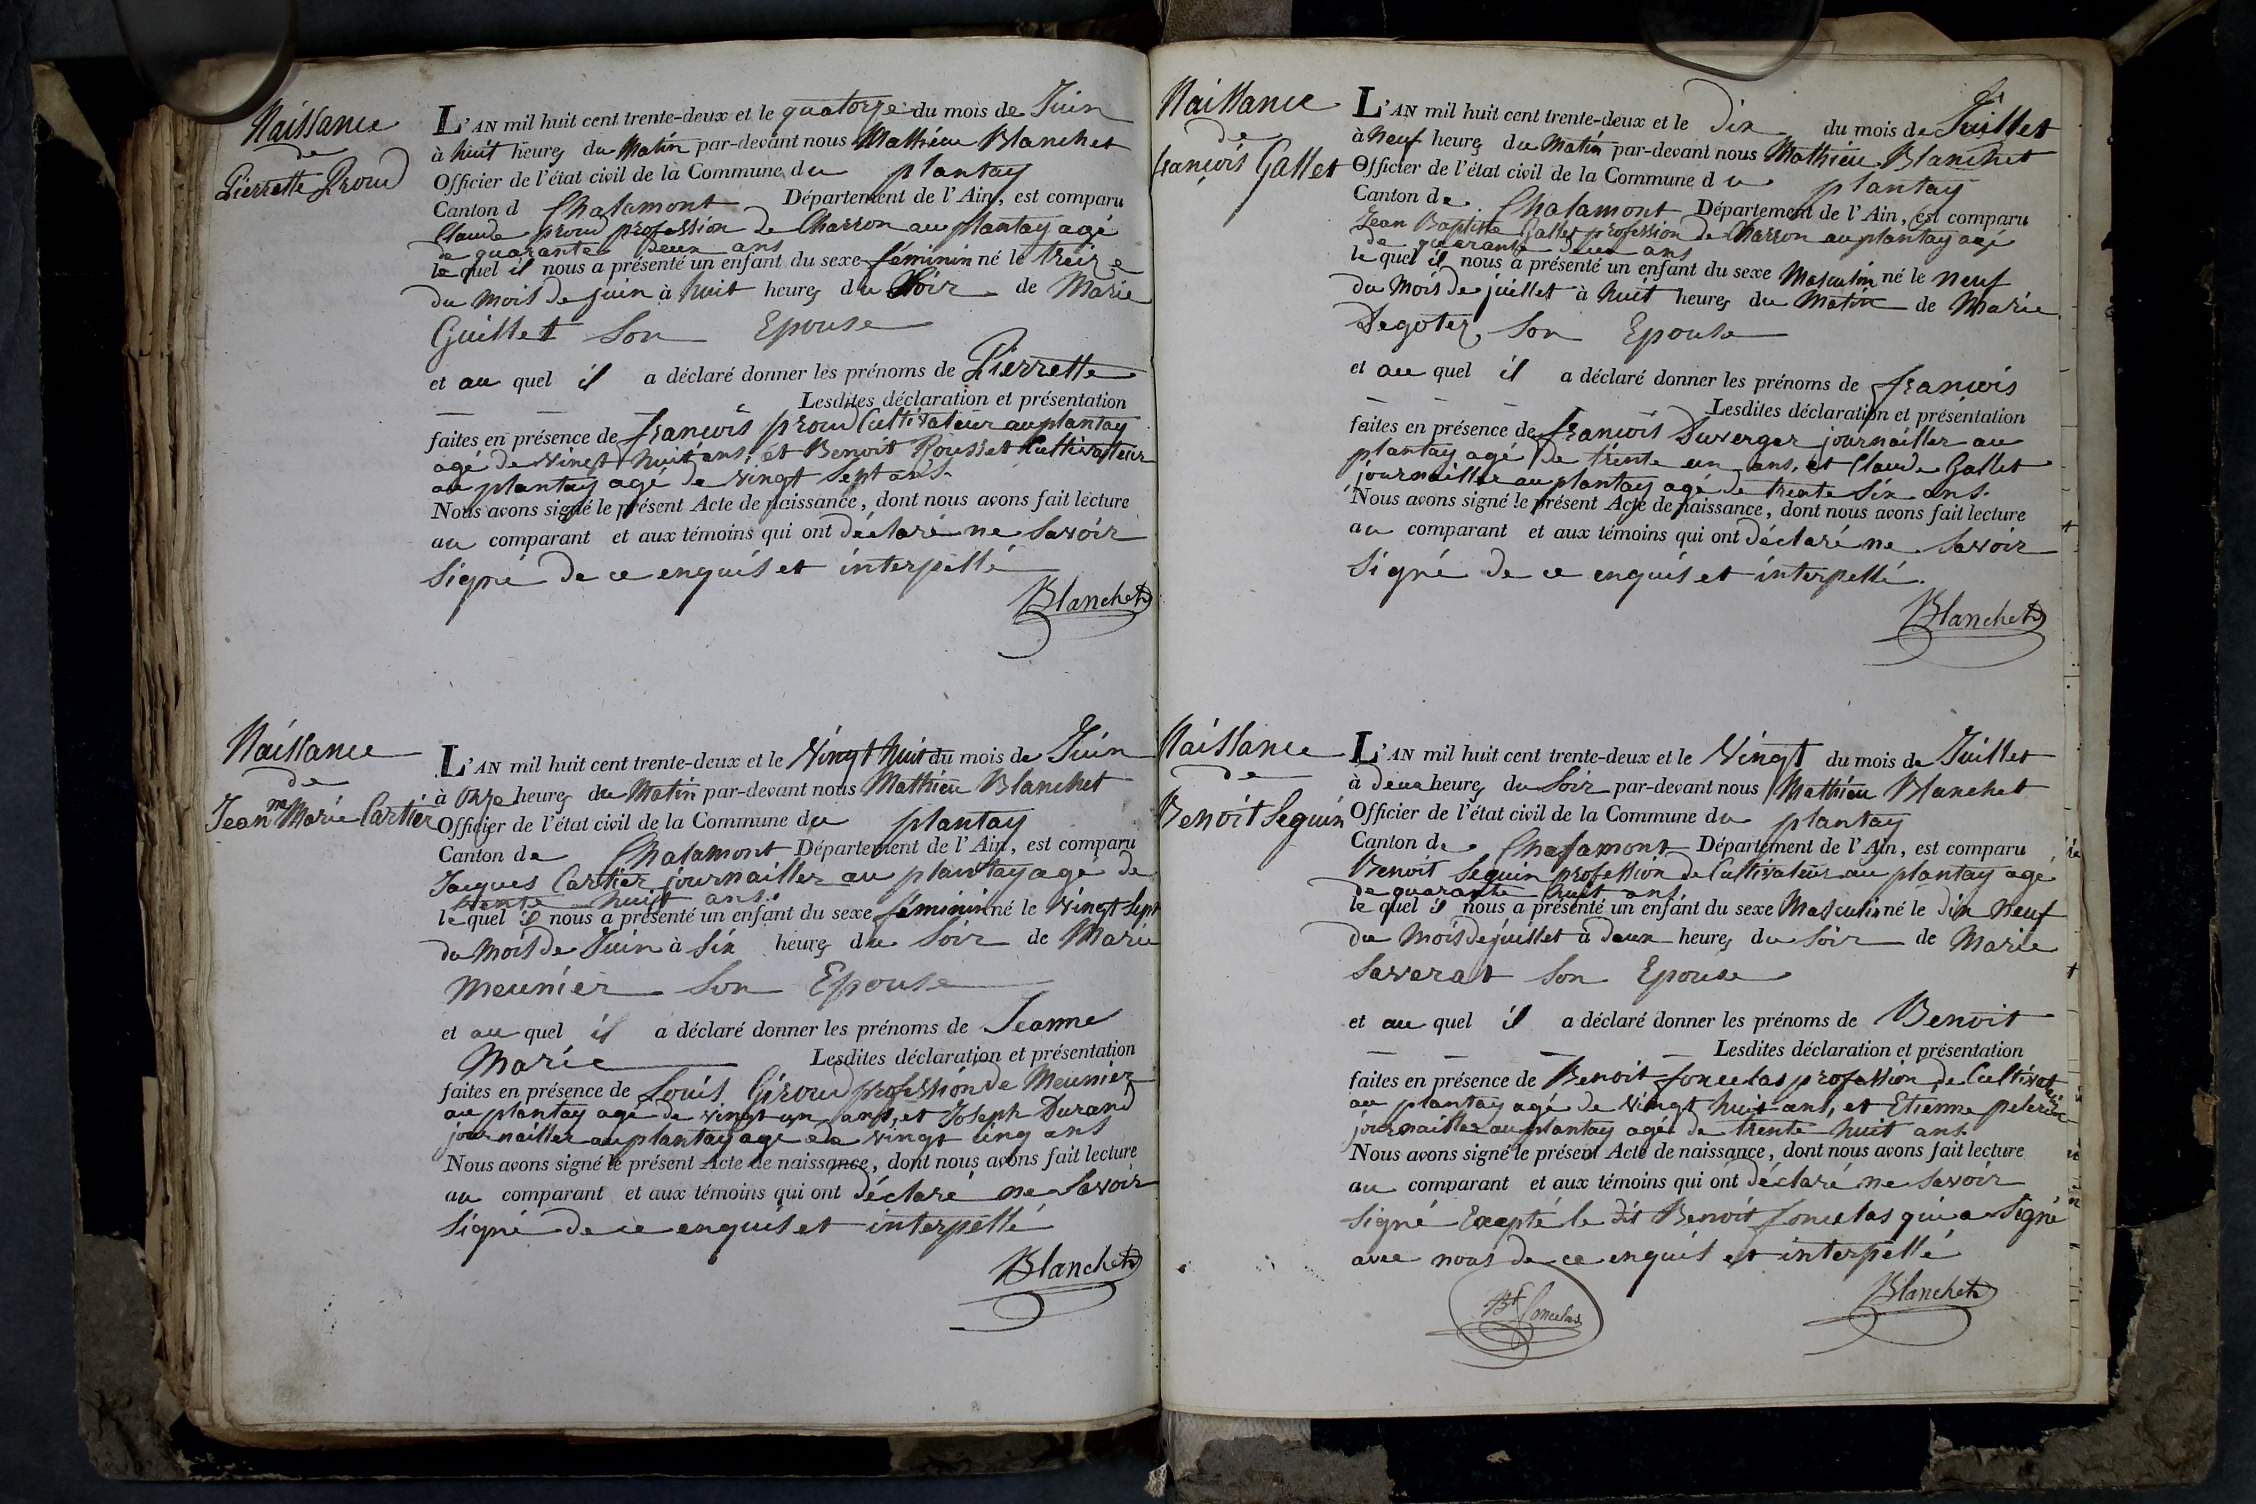 Naissance
de
Pierrette Proud
L'AN mil huit cent trente-deux et le quatorze du mois de Juin
à huit heures du Matin par-devant nous Mathieu Blanchet
Officier de l'état civil de la Commune du plantay
Canton d Chalamont Département de l'Ain, est comparu
Claude proud profession de Charron au plantay agé
de quarante deux ans
le quel il nous a présenté un enfant du sexe féminin né le treize
du mois de juin à huit heures du Soir de Marie
Guillet Son Epouse
et au quel il a déclaré donner les prénoms de Pierrette
Lesdites déclaration et présentation
faites en présence de françois proud Cultivateur au plantay
agé de vingt huit ans, et Benoit Rousset Cultivateur
au plantay agé de vingt sept ans.
Nous avons signé le présent Acte de naissance, dont nous avons fait lecture
au comparant et aux témoins qui ont déclaré ne Savoir
Signé de ce enquis et interpellé
Blanchet
Naissance
de
Jeanne Marie Cartier
L'AN mil huit cent trente-deux et le Vingt huit du mois de Juin
à Onze heures du Matin par-devant nous Mathieu Blanchet
Officier de l'état civil de la Commune du plantay
Canton de Chalamont Département de l'Ain, est comparu
Jacques Cartier journailler au plantay agé de
trente huit ans.
le quel il nous a présenté un enfant du sexe féminin né le Vingt Sept
du mois de Juin à Six heures du Soir de Marie
Meunier Son Epouse
et au quel il a déclaré donner les prénoms de Jeanne
Marie Lesdites déclaration et présentation
faites en présence de Louis Giroud profession de Meunier
au plantay agé de vingt un ans, et Joseph Durand
journailler au plantay agé de vingt cinq ans
Nous avons signé le présent Acte de naissance, dont nous avons fait lecture
au comparant et aux témoins qui ont déclaré ne Savoir
Signé de ce enquis et interpellé
Blanchet
Naissance
de
françois Gallet
L'AN mil huit cent trente-deux et le Dix du mois de Juillet
à Neuf heures du Matin par-devant nous Mathieu Blanchet
Officier de l'état civil de la Commune du plantay
Canton de Chalamont Département de l'Ain, est comparu
Jean Baptiste Gallet profession de Charron au plantay agé
de quarante deux ans
le quel il nous a présenté un enfant du sexe Masculin né le Neuf
du Mois de juillet à huit heures du Matin de Marie
Degoter Son Epouse
et au quel il a déclaré donner les prénoms de françois
Lesdites déclaration et présentation
faites en présence de françois Duverger journailler au
plantay agé de trente un ans, et Claude Gallet
journailler au plantay agé de trente Six ans.
Nous avons signé le présent Acte de naissance, dont nous avons fait lecture
au comparant et aux témoins qui ont déclaré ne Savoir
Signé de ce enquis et interpellé.
Blanchet
Naissance
de
Benoit Seguin
L'AN mil huit cent trente-deux et le Vingt du mois de Juillet
à deux heures du Soir par-devant nous Mathieu Blanchet
Officier de l'état civil de la Commune du plantay
Canton de Chalamont Département de l'Ain, est comparu
Benoit Seguin profession de Cultivateur au plantay agé
de quarante huit ans
le quel il nous a présenté un enfant du sexe Masculin né le dix Neuf
du Mois de juillet à deux heures du Soir de Marie
Saverat Son Epouse
et au quel il a déclaré donner les prénoms de Benoit
Lesdites déclaration et présentation
faites en présence de Benoit foncelas profession de Cultivateur
au plantay agé de Vingt huit ans, et Etienne pelerin
journailler au plantay agé de trente huit ans.
Nous avons signé le présent Acte de naissance, dont nous avons fait lecture
au comparant et aux témoins qui ont déclaré ne Savoir
Signé Excepté le dit Benoit foncelas qui a Signé
avec nous de ce enquis et interpellé
Bt foncelas
Blanchet